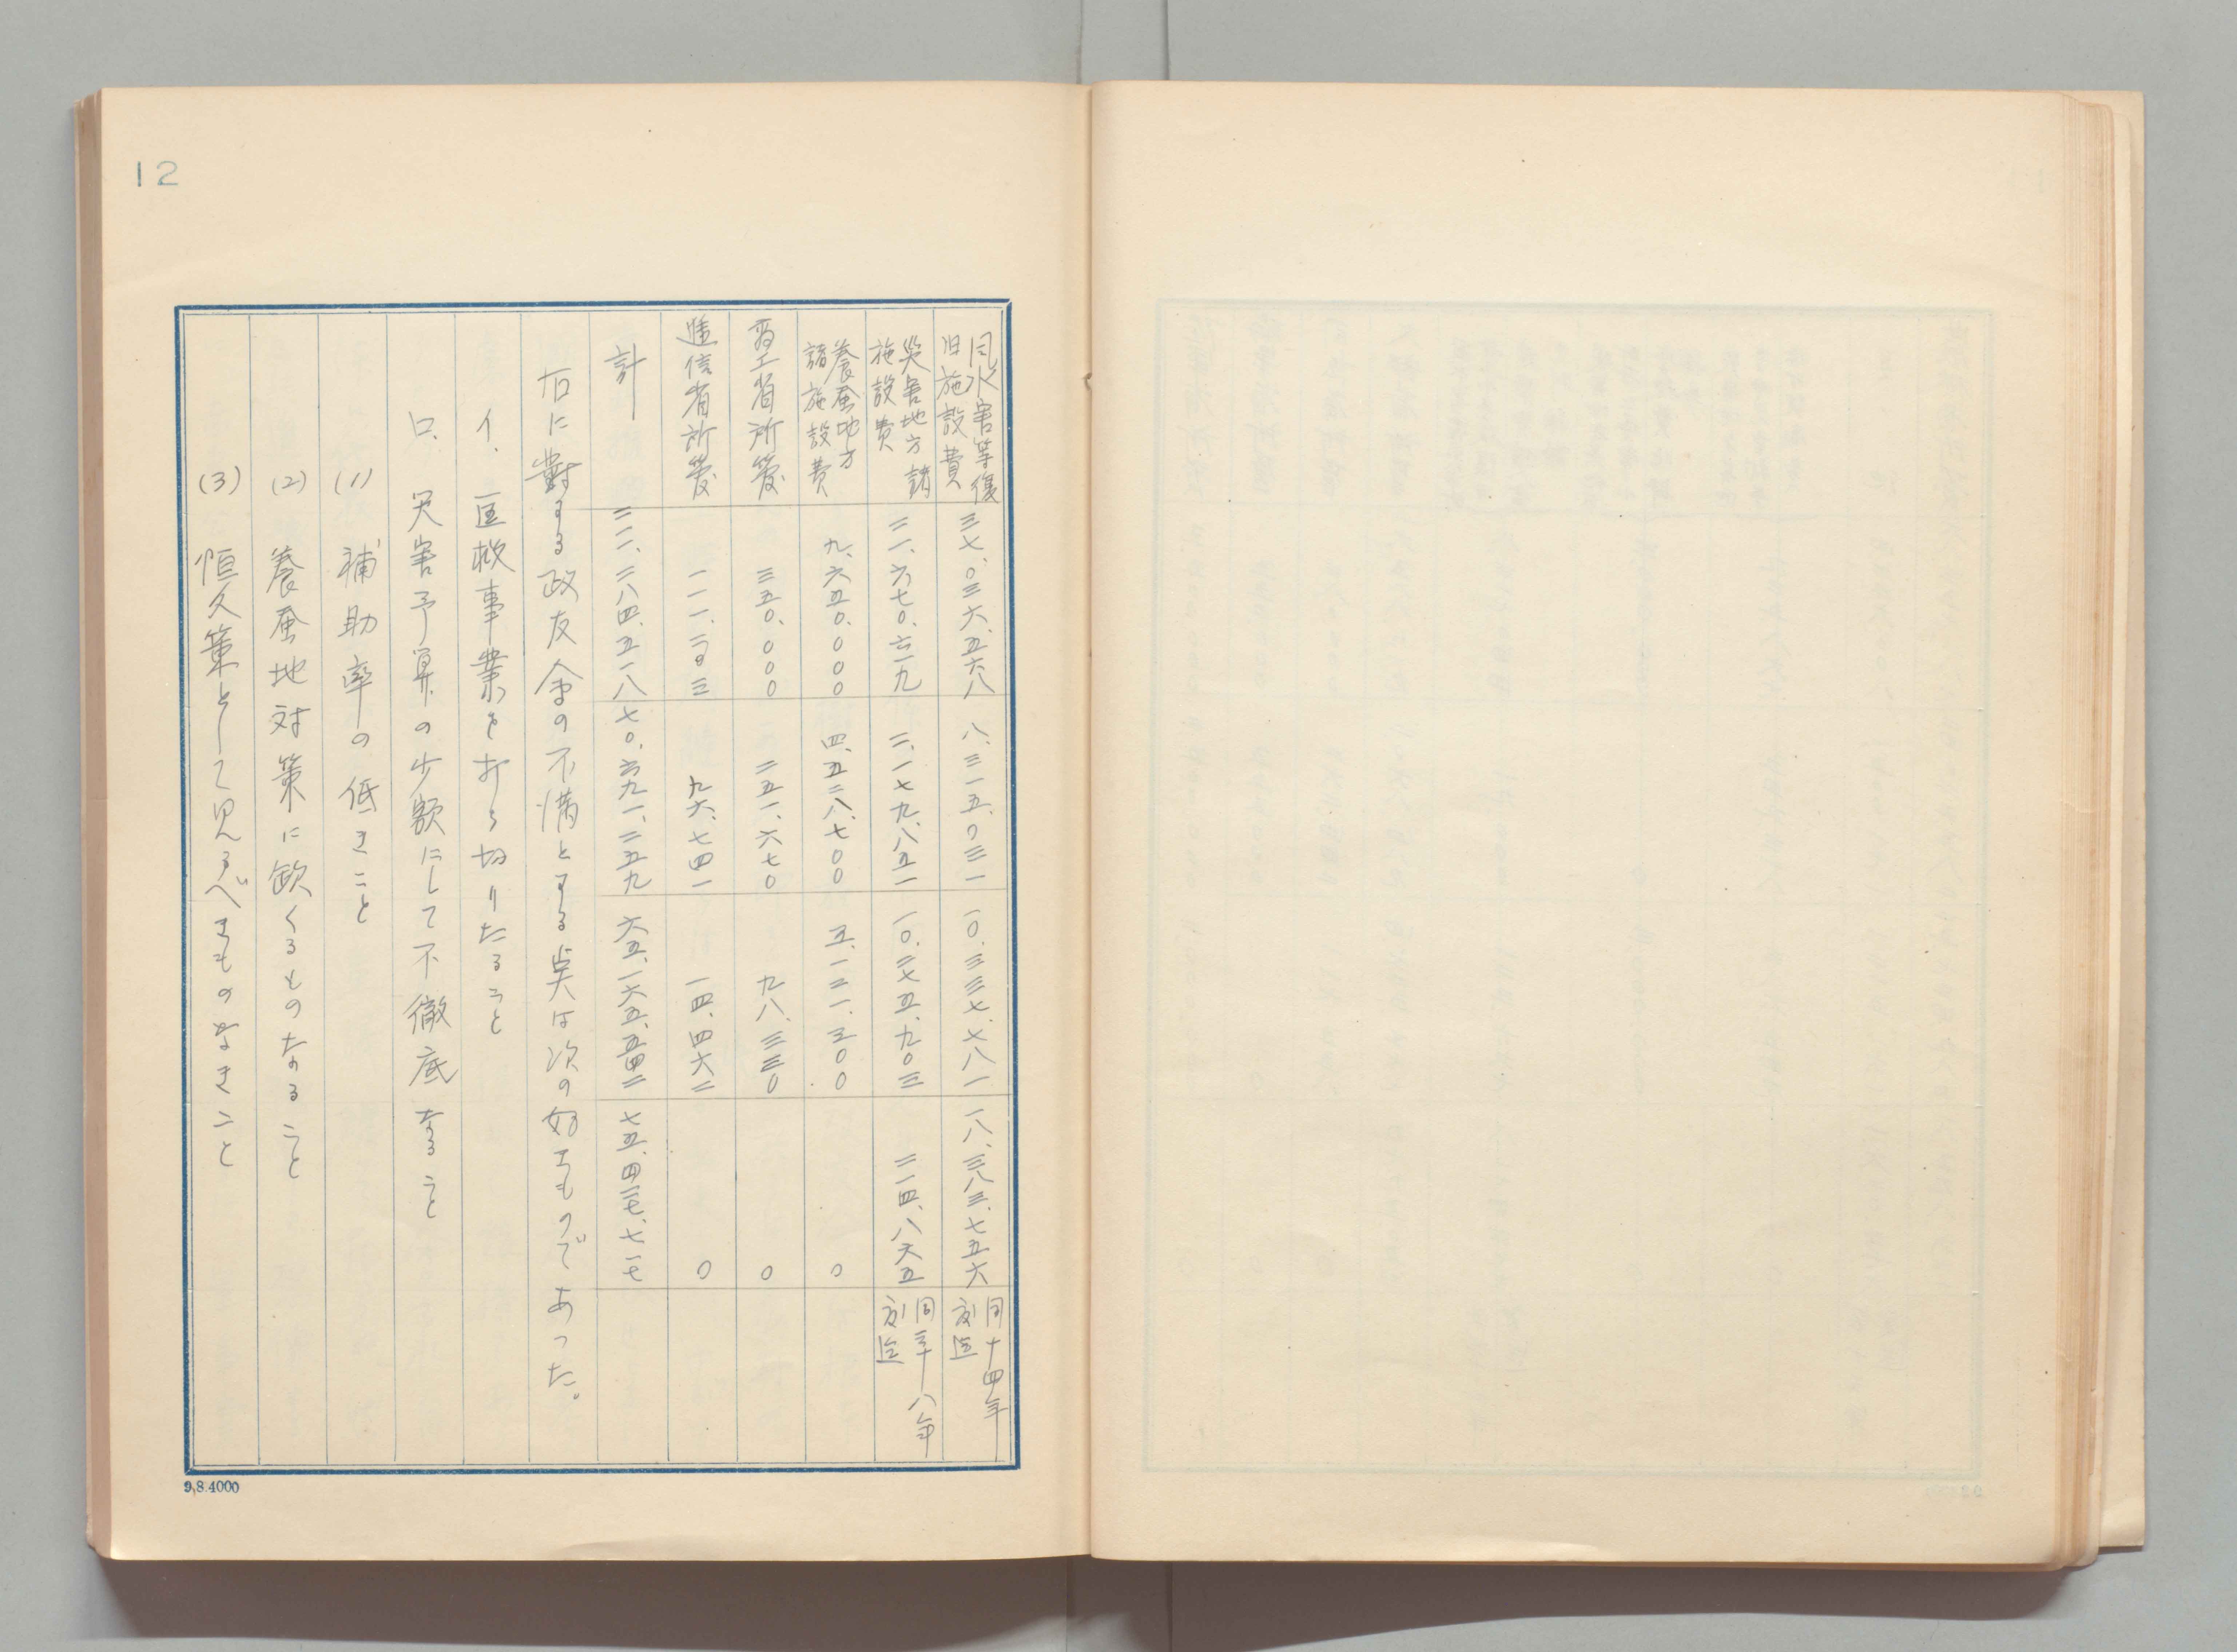 12
風水害等復旧施設費 三七、〇三六、五六八 八、三一五、〇三一 一〇、三三七、七八一 一八、三八三、七五六 同十四年度迄
災害地方諸施設費 二一、六七〇、六一九 二、一七九、八五一 一〇、二七五、九〇三 二一四、八六五 同二十八年度迄
養蚕地方諸施設費 九、六五〇、〇〇〇 四、五二八、七〇〇 五、一二一、三〇〇 〇
商工省所管 三五〇、〇〇〇 二五一、六七〇 九八、三三〇 〇
逓信省所管 一一一、二〇三 九六、七四一 一四、四六二 〇
計 二一一、二八四、五一八 七〇、六九一、二五九 六五、一六五、五四二 七五、四二七、七一七
右に對する政友会の不満とする点は次の如きものであった。
イ、匡救事業を打ち切りたること
ロ、災害予算の少額にして不徹底なること
(1) 補助率の低きこと
(2) 養蚕地対策に欠くるものなること
(3) 恒久策として見るべきものなきこと
9.8.4000